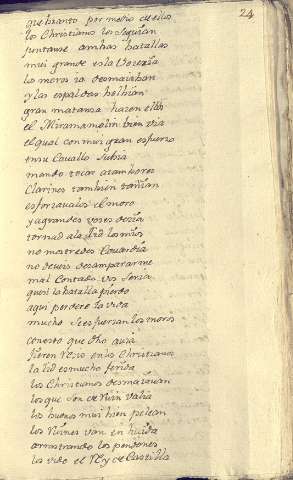 24
que branto por medio de ellos
los Christianos los seguian
juntanse ambas batallas
mui grande es la Vozeria
los moros ia desmaiaban
y las espaldas bolbian
gran matanza hazen ellos
el Miramamolin bien via
el qual con mui gran esfuerzo
en su Cauallo subia
mando tocar atambores
Clarines tambien tañian
esforzaualos el moro
y a grandes vozes dezia
tornad a la lid los mios
no mostredes Couardia
no deveis desampararme
mal Contado vos seria
que si la batalla pierdo
aqui perdere la vida
mucho se esfuerzan los moros
con esto que dho auia
fieren Rezio en los Christianos
la lid es mucho ferida
los Christianos desmaiauan
los que son de Ruin valia
los buenos mui bien pelean
los Ruines van en huida
arrastrando los pendones
los vido el Rey de Castilla